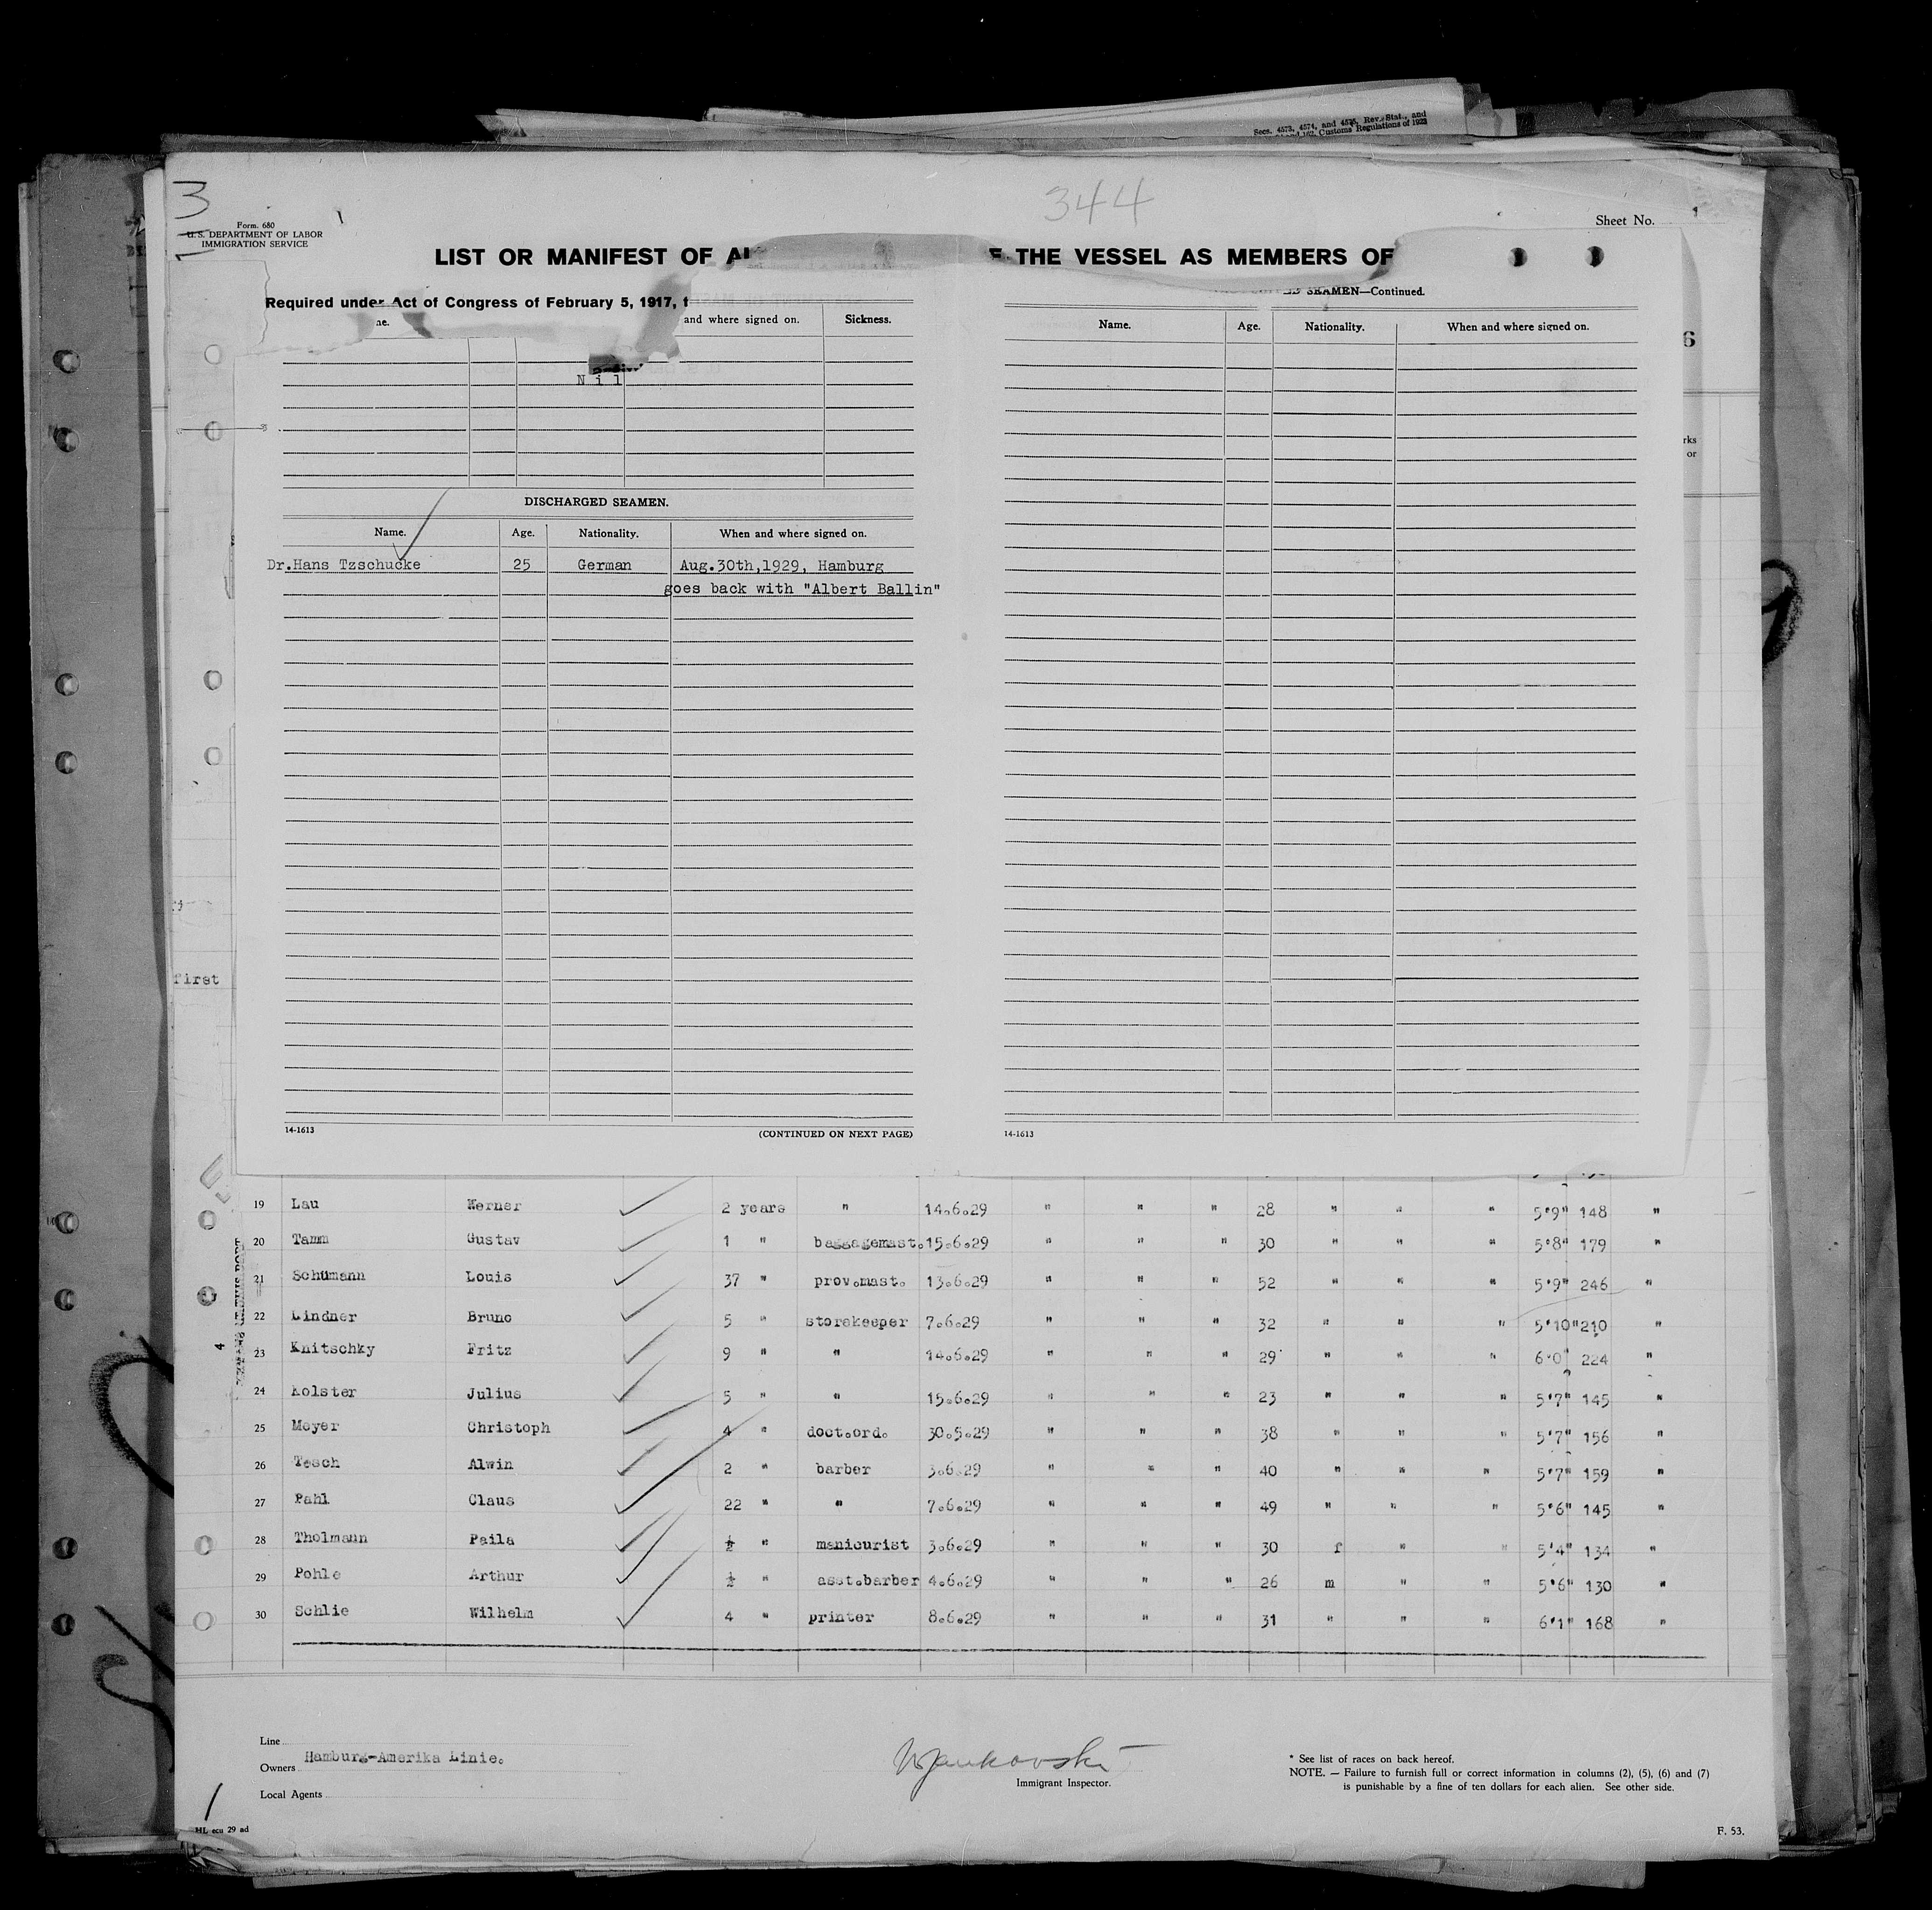 Secs. 4573, 4574, and 4575, Rev. Stat., and
162, Customs Regulations of 1923
3
344
Form. 680
U. S. DEPARTMENT OF LABOR
IMMIGRATION SERVICE
Sheet No. 1
LIST OR MANIFEST OF AL
THE VESSEL AS MEMBERS OF
Required under Act of Congress of February 5, 1917, t
ne. and where signed on. Sickness.
Nil
DISCHARGED SEAMEN.
Name. Age. Nationality. When and where signed on.
Dr.Hans Tzschucke 25 German Aug.30th,1929, Hamburg
goes back with "Albert Ballin"
14-1613 (CONTINUED ON NEXT PAGE)
SEAMEN—Continued.
Name. Age. Nationality. When and where signed on.
14-1613
6
rks
or
first
4
19 Lau Werner 2 years " 14.6.29 " " " 28 " " " 5'9" 148 "
20 Tamm Gustav 1 " baggagemast. 15.6.29 " " " 30 " " " 5'8" 179 "
21 Schümann Louis 37 " prov.mast. 13.6.29 " " " 52 " " " 5'9" 246 "
22 Lindner Bruno 5 " storekeeper 7.6.29 " " " 32 " " " 5'10" 210 "
23 Knitschky Fritz 9 " " 14.6.29 " " " 29 " " " 6'0" 224 "
24 Kolster Julius 5 " " 15.6.29 " " " 23 " " " 5'7" 145 "
25 Meyer Christoph 4 " doct.ord. 30.5.29 " " " 38 " " " 5'7" 156 "
26 Tesch Alwin 2 " barber 3.6.29 " " " 40 " " " 5'7" 159 "
27 Pahl Claus 22 " " 7.6.29 " " " 49 " " " 5'6" 145 "
28 Tholmann Paila ½ " manicurist 3.6.29 " " " 30 f " " 5'4" 134 "
29 Pohle Arthur ½ " asst.barber 4.6.29 " " " 26 m " " 5'6" 130 "
30 Schlie Wilhelm 4 " printer 8.6.29 " " " 31 " " " 6'1" 168 "
Line
Owners Hamburg-Amerika Linie.
Local Agents
Immigrant Inspector.
* See list of races on back hereof.
NOTE. — Failure to furnish full or correct information in columns (2), (5), (6) and (7)
is punishable by a fine of ten dollars for each alien. See other side.
1
HL ecu 29 ad
F. 53.